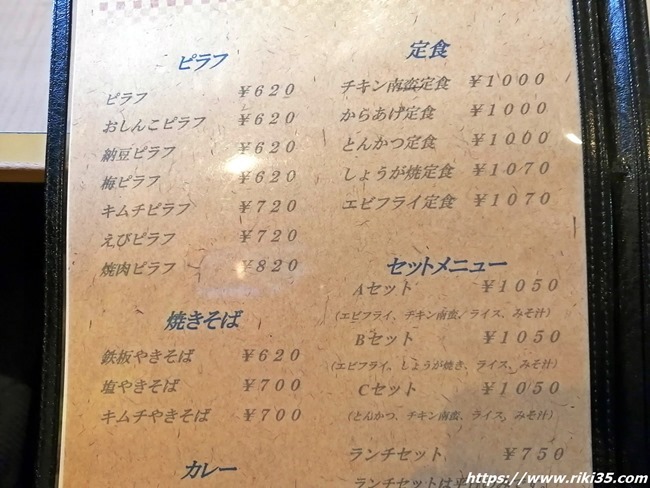 ピラフ
ピラフ ￥620
おしんこピラフ ￥620
納豆ピラフ ￥620
梅ピラフ ￥620
キムチピラフ ￥720
えびピラフ ￥720
焼肉ピラフ ￥820
焼きそば
鉄板やきそば ￥620
塩やきそば ￥700
キムチやきそば ￥700
カレー
定食
チキン南蛮定食 ￥1000
からあげ定食 ￥1000
とんかつ定食 ￥1000
しょうが焼定食 ￥1070
エビフライ定食 ￥1070
セットメニュー
Aセット ￥1050
（エビフライ、チキン南蛮、ライス、みそ汁）
Bセット ￥1050
（エビフライ、しょうが焼き、ライス、みそ汁）
Cセット ￥1050
（とんかつ、チキン南蛮、ライス、みそ汁）
ランチセット ￥750
ランチセットは平
https://www.riki35.com